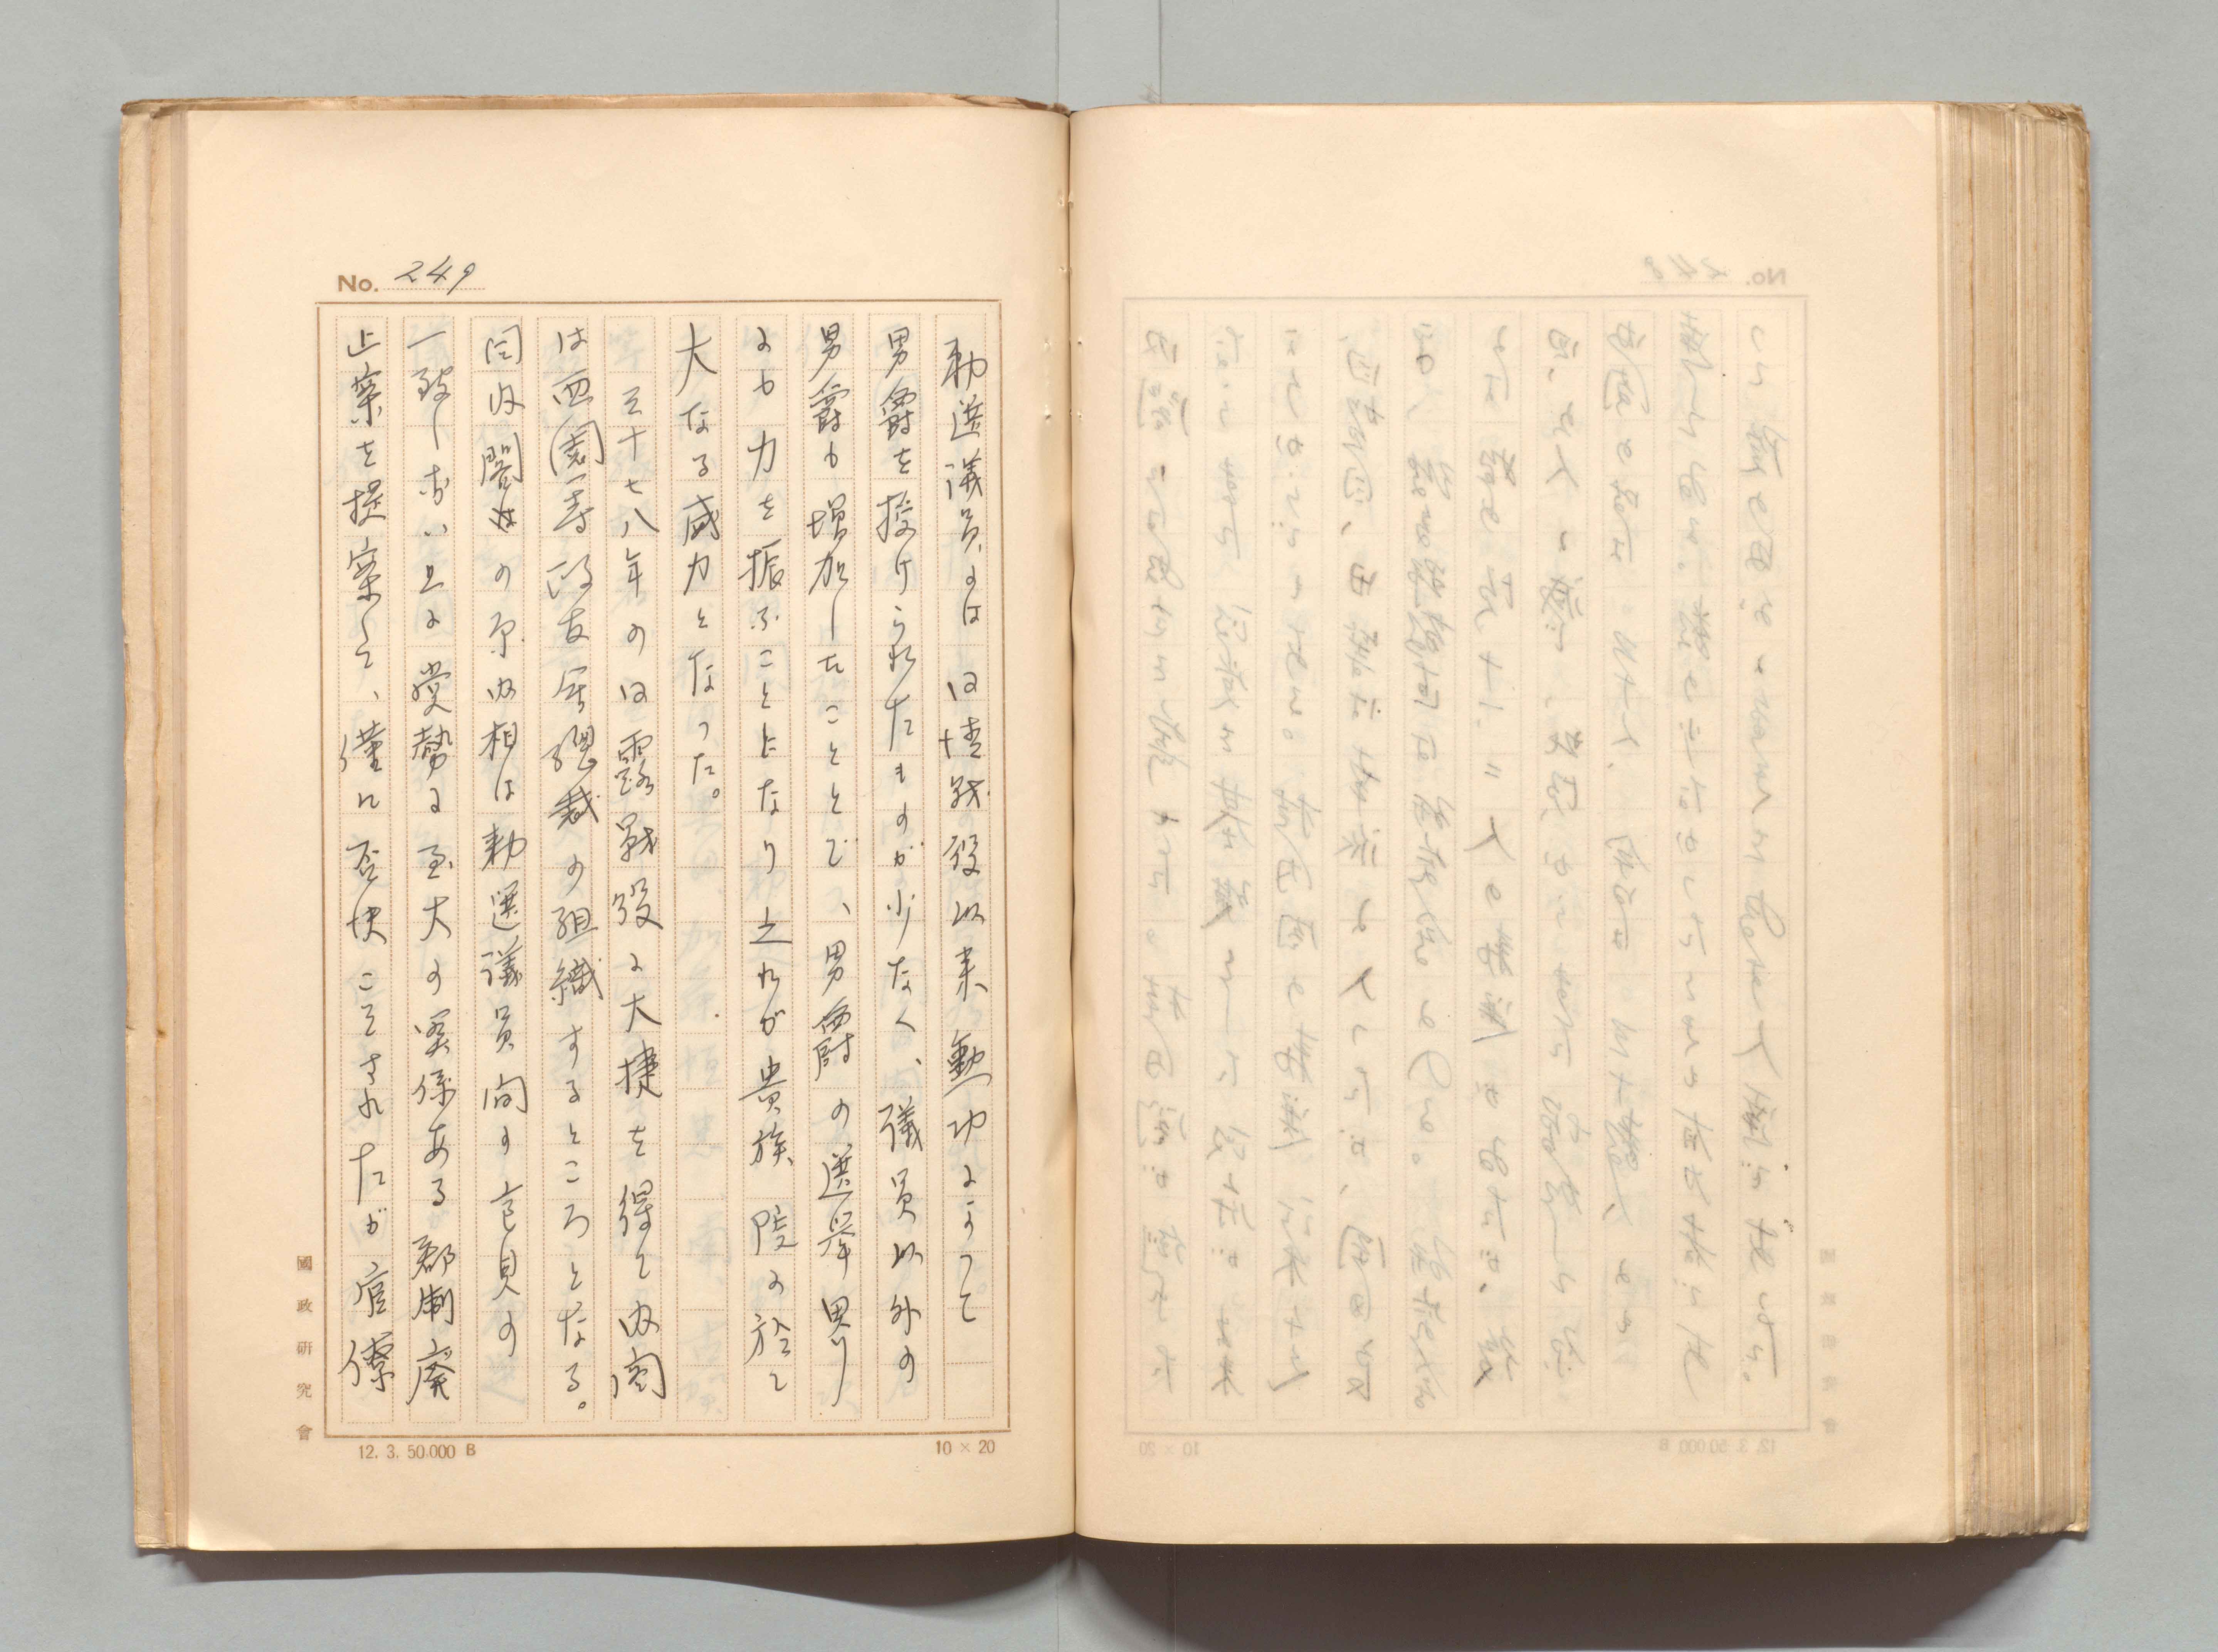 No. 249
勅選議員には日清戦役以来勲功によつて
男爵を授けられたものが少なく、議員以外の
男爵も増加したことゝで、男爵の選挙界
にも力を振ふことゝなり之れが貴族院に於て
大なる威力となつた。
三十七八年のは露戦役に大捷を得て内閣
は西園寺政友会総裁の組織するところとなる。
同内閣の原内相は勅選議員間の官員の
一致しない上に党勢に至大の関係ある郡制廃
止案を提案して、僅に否決こそされたが官僚
國政研究會
12. 3. 50.000 B
10 × 20